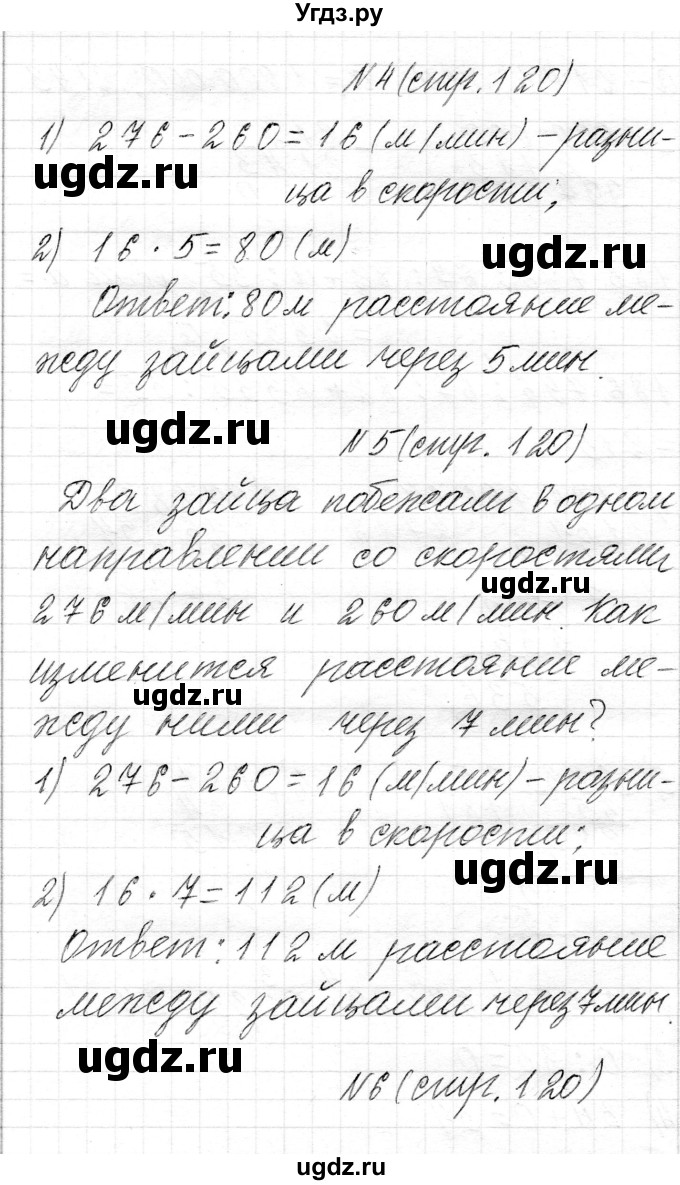 Угдз.ру
№4(стр.120)
1) 276-260=16(м/мин)-разни-
ugdz.ru
ца в скорости;
2) 16·5=80(м)
ugdz.ru
Ответ: 80м расстояние ме-
жду зайцами через 5мин.
ugdz.ru
№5(стр.120)
Два зайца побежали в одном
направлении со скоростями
ugdz.ru
276м/мин и 260м/мин. Как
изменится расстояние ме-
ugdz.ru
жду ними через 7мин?
1) 276-260=16(м/мин)-разни-
ца в скорости;
ugdz.ru
2) 16·7=112(м)
Ответ: 112м расстояние
между зайцами через 7мин.
ugdz.ru
№6(стр.120)
ugdz.ru